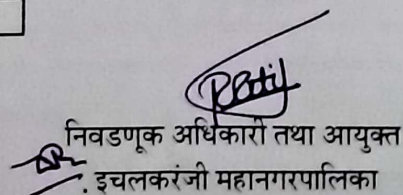 निवडणूक अधिकारी तथा आयुक्त
इचलकरंजी महानगरपालिका